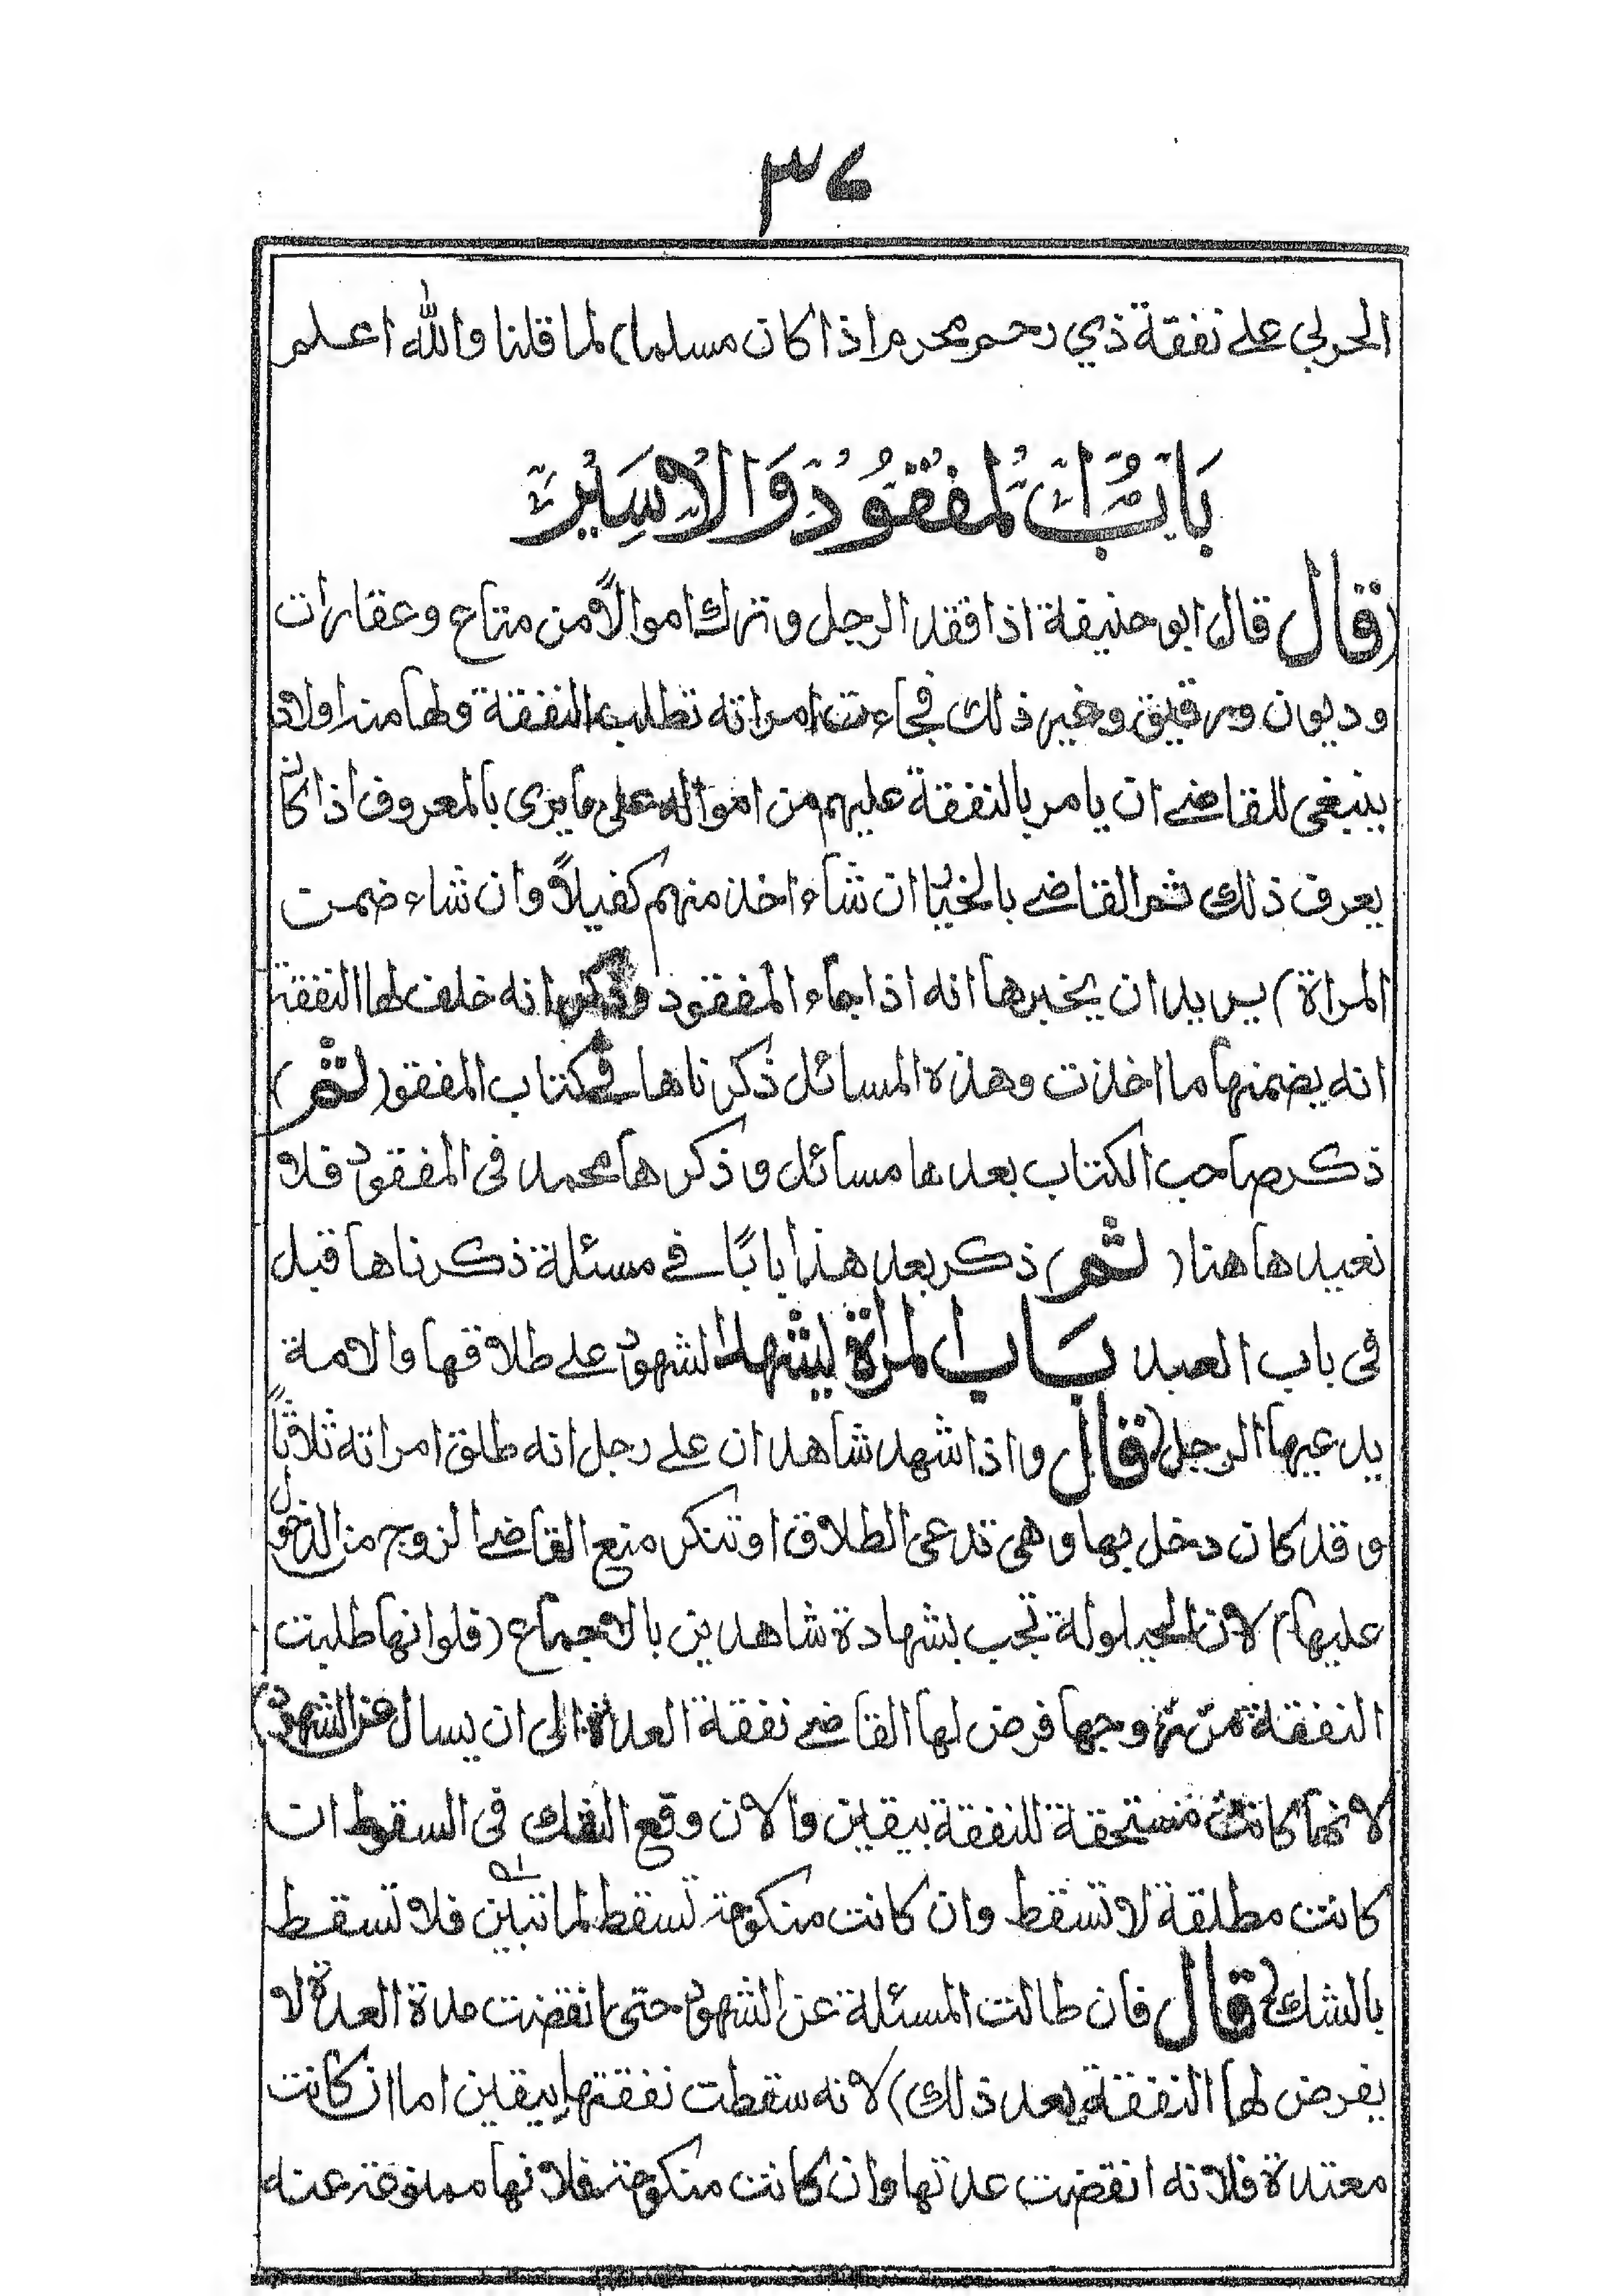 ٣٤
الحربي على نفقة ذي رحم محرم اذا كان مسلما) لما قلنا والله اعلم
بَابُ الْمَفْقُوْدِ وَالْاَسِيْرِ
(قال قال ابو حنيفة اذا فقد الرجل وترك اموالاً من متاع وعقارات
وديون ورقيق وغير ذلك فجاءت امراته تطلب النفقة ولها منه اولاد
ينبغي للقاضي ان يامر بالنفقة عليهم من امواله على ما يرى بالمعروف اذا كان
يعرف ذلك ثم القاضي بالخيار ان شاء اخذ منهم كفيلاً وان شاء ضمنت
المراة) يريد ان يخبرها انه اذا جاء المفقود وذكر انه خلف لها النفقة
انه يضمنها ما اخذت وهذه المسائل ذكرناها في كتاب المفقود (ثم)
ذكر صاحب الكتاب بعدها مسائل وذكرها محمد في المفقود فلا
نعيدها هنا (ثم) ذكر بعد هذا بابًا في مسئلة ذكرناها قبل
في باب العبد باب المراة يشهد الشهود على طلاقها والامة
يدعيها الرجل (قال واذا شهد شاهدان على رجل انه طلق امراته ثلاثاً
وقد كان دخل بها وهي تدعى الطلاق او تنكر منع القاضي الزوج من الدخول
عليها) لان الحيلولة تجب بشهادة شاهدين بالاجماع (فلو انها طلبت
النفقة من زوجها فرض لها القاضي نفقة العدة الى ان يسال عن الشهود)
لانها كانت مستحقة للنفقة بيقين والان وقع الشك في السقوط ان
كانت مطلقة لا تسقط وان كانت منكوحة تسقط لما تبين فلا تسقط
بالشك (قال فان طالت المسئلة عن الشهود حتى انقضت مدة العدة لا
يفرض لها النفقة بعد ذلك) لانه سقطت نفقتها بيقين اما ان كانت
معتدة فلانه انقضت عدتها وان كانت منكوحة فلانها ممنوعة عنه